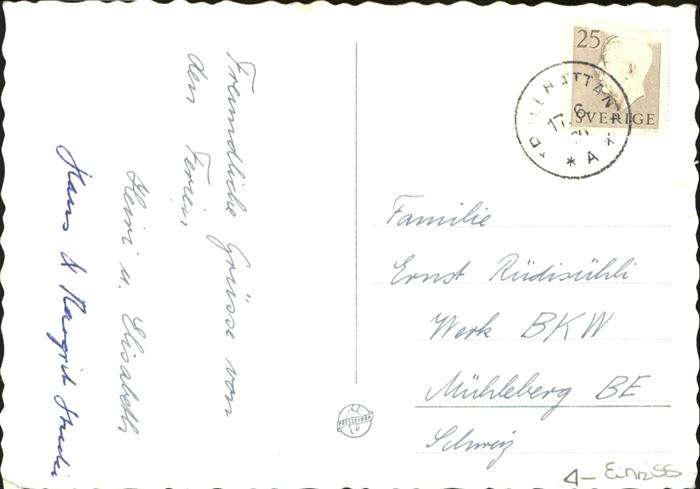 Freundliche Grüsse von
den Ferien
Heiri u. Elisabeth
Hans & Margrit
25
SVERIGE
TROLLHÄTTAN
17 6
* A *
Familie
Ernst Rüdisühli
Werk BKW
Mühleberg BE
Schweiz
Einriss